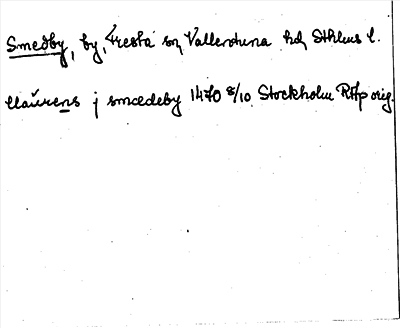 Smedby, by, Fresta sn Vallentuna hd Sthlms l.
llaurens j smædeby 1470 8/10 Stockholm RAp orig.